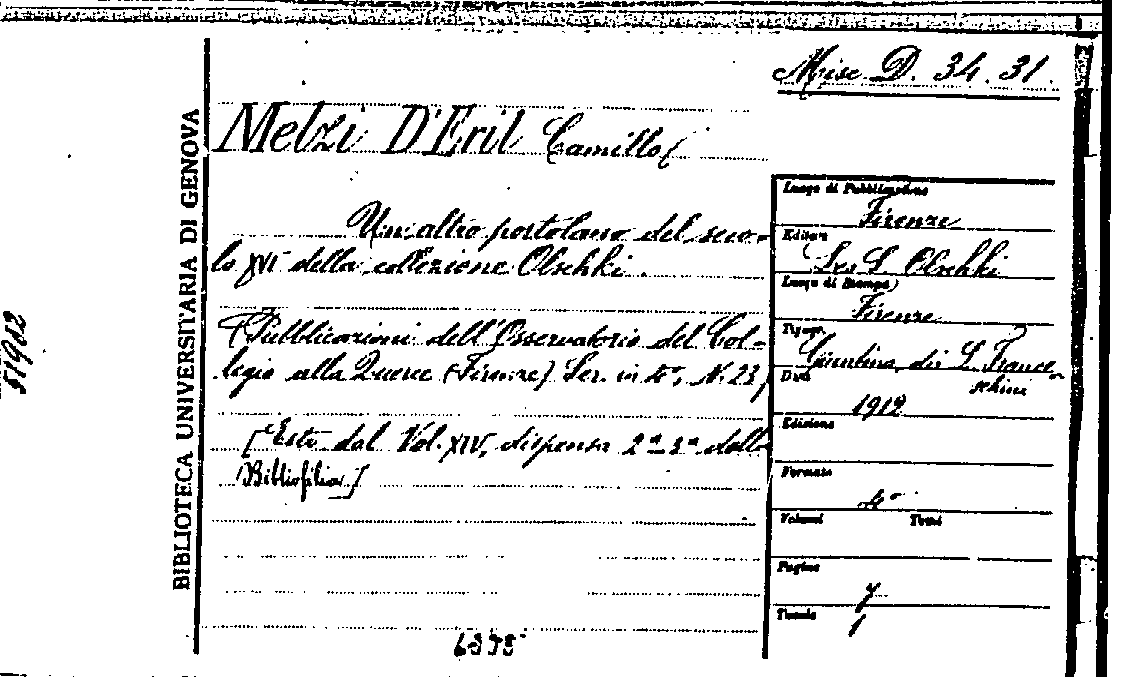 Misc D. 34. 31.
Melzi D'Eril Camillo
Un altro portolano del seco-
lo XVI della collezione Olschki.
(Pubblicazioni dell'Osservatorio del Col-
legio alla Querce (Firenze) Ser. in 4°, N. 23)
[Estr. dal Vol. XIV, dispensa 2ª-3ª della
Bibliofilia]
6375
BIBLIOTECA UNIVERSITARIA DI GENOVA
51912
Luogo di Pubblicazione
Firenze
Editore
Leo S. Olschki
Luogo di Stampa
Firenze
Tipogr.
Giuntina, di L. France-
schini
Data
1912
Edizione
Formato
4°
Volumi Tomi
Pagine
7
Tavole
1